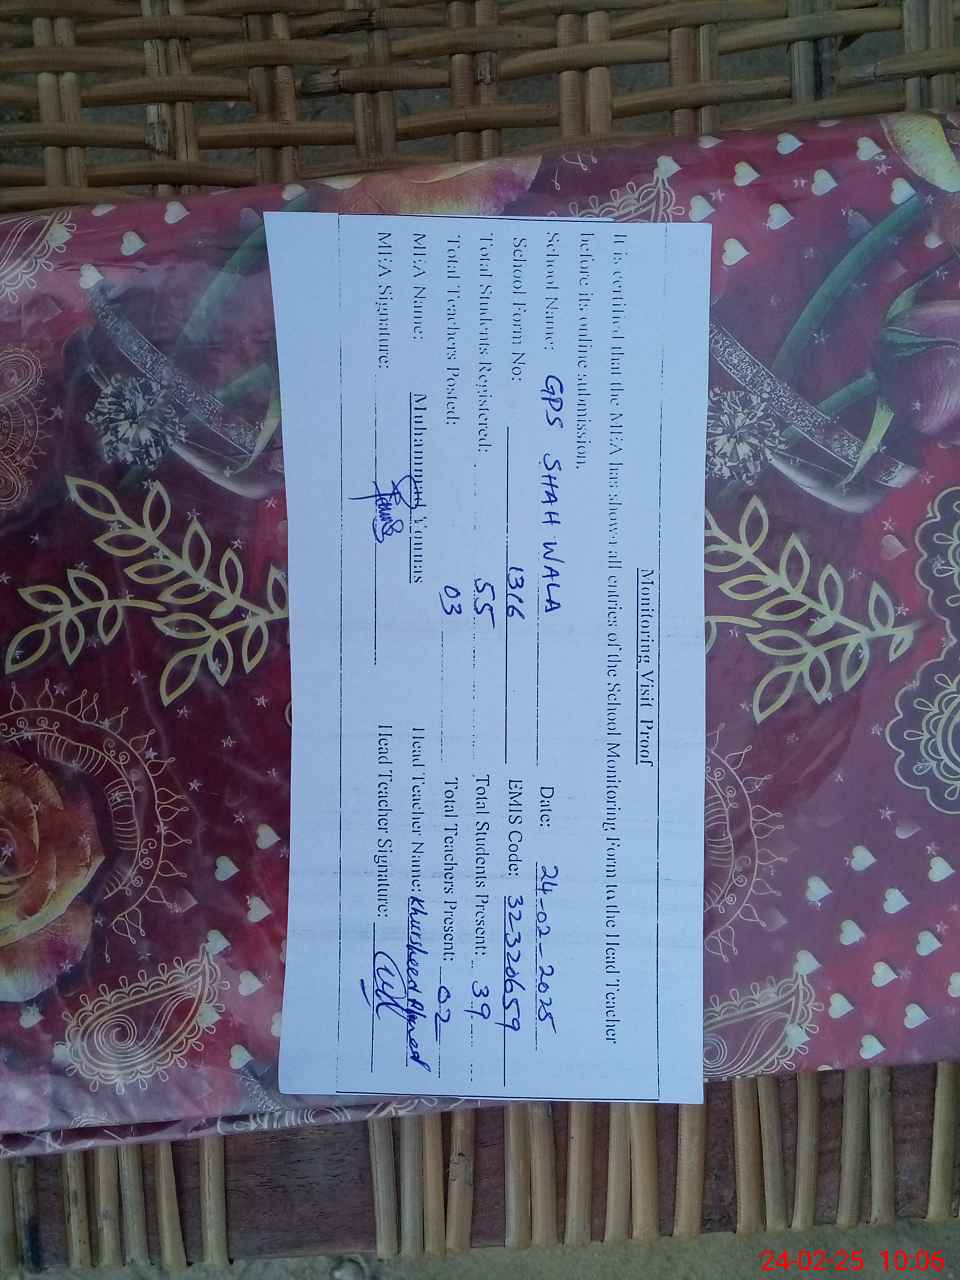 Monitoring Visit Proof
It is certified that the MEA has shown all entries of the School Monitoring Form to the Head Teacher
before its online submission.
School Name: GPS SHAH WALA Date: 24-02-2025
School Form No: 1316 EMIS Code: 32320659
Total Students Registered: 55 Total Students Present: 39
Total Teachers Posted: 03 Total Teachers Present: 02
MEA Name: Muhammad Younas Head Teacher Name: Khursheed Ahmed
MEA Signature: Head Teacher Signature:
24-02-25 10:06